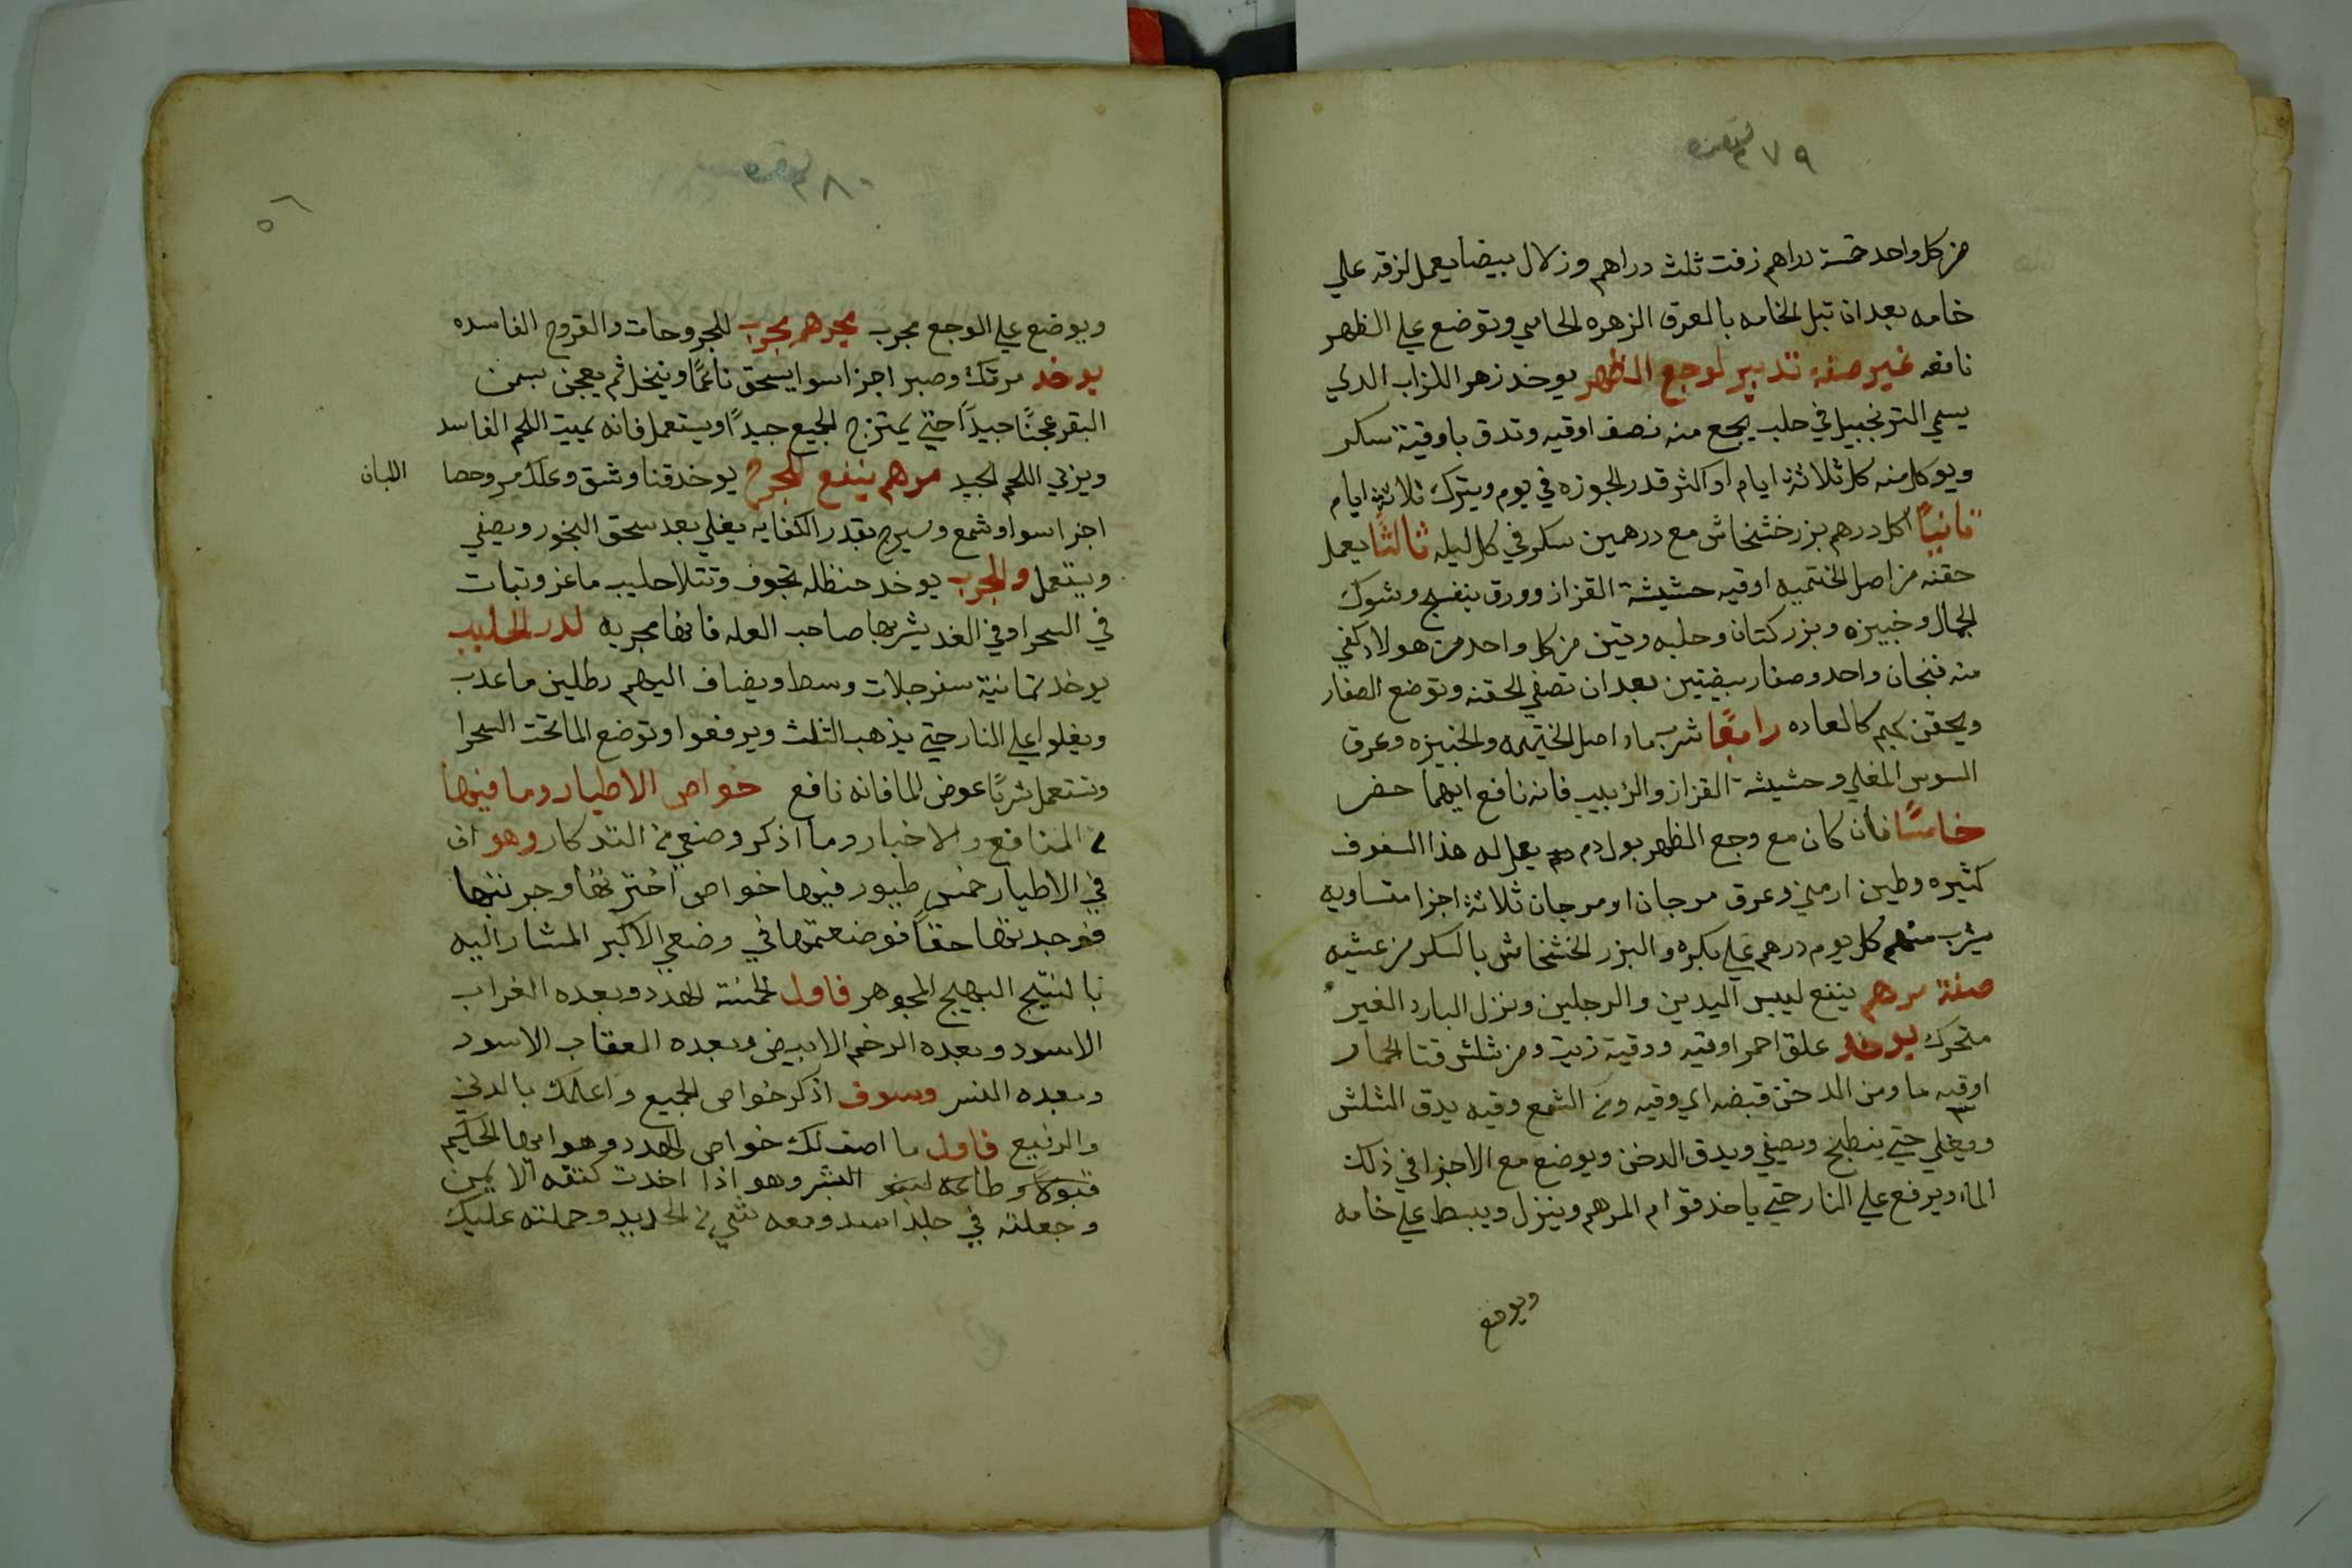 ٢٧٩
من كل واحد خمسة دراهم زفت ثلث دراهم وزلال بيضا يعمل لزقه علي
خامه بعد ان تبل الخامه بالعرق الزهره الحامي وتوضع علي الظهر
نافعه غيره صفة تدبير لوجع الظهر يوخد زهر اللزاب الدي
يسمي الترنجبيل في حلب يجمع منه نصف اوقيه وتدق باوقية سكر
ويوكل منه كل ثلاثة ايام او اكثر قدر الجوزه في يوم ويترك ثلاثة ايام
ثانيًا اكل درهم بزر خشخاش مع درهمين سكر في كل ليله ثالثًا يعمل
حقنه من اصل الختميه اوقيه حشيشة القزاز وورق بنفسج وشوك
الجمال وخبيزه وبزر كتان وحلبه وتين من كل واحد من هولا كفي
منه فنجان واحد وصفار بيضتين بعد ان تصفي الحقنه وتوضع الصفار
ويحقن بهم كالعاده رابعًا شرب ماء اصل الختميه والخبيزه وعرق
السوس المغلي وحشيشة القزاز والزبيب فانه نافع ايهما حضر
خامسًا فان كان مع وجع الظهر بول دم يعمل له هذا السفوف
كثيره وطين ارمني وعرق مرجان او مرجان ثلاثة اجزا متساويه
يشرب منهم كل يوم درهم علي بكره والبزر الخشخاش بالسكر من عشيه
صفة مرهم ينفع ليبس اليدين والرجلين ونزل البارد الغير
متحرك يوخد علق احمر اوقيه ووقية زيت ومن شلش قتا الحمار
اوقيه ما ومن الدخن قبضه اي وقيه ومن الشمع وقيه يدق الشلش
ويغلي حتي ينطبخ ويصفي ويدق الدخن ويوضع مع الاجزا في ذلك
الماء ويرفع علي النار حتي ياخد قوام المرهم وينزل ويبسط علي خامه
ويوضع
٢٨٠
٥٦
ويوضع علي الوجع مجرب مرهم مجرب للجروحات والقروح الفاسده
يوخد مرتك وصبر اجزا سوا يسحق ناعمًا وينخل ثم يعجن بسمن
البقر عجنًا جيدًا حتي يمتزج الجميع جيدًا ويستعمل فانه يميت اللحم الفاسد
ويربي اللحم الجيد مرهم ينفع للجرح يوخد قنا وشق وعلك مر وحصا اللبان
اجزا سوا وشمع وسيرج بقدر الكفايه يغلي بعد سحق البخور ويصفي
ويستعمل والمجرب يوخد حنظله تجوف وتتلا حليب ماعز وتبات
في السحر او في الغد يشربها صاحب العله فانها مجربه لدر الحليب
يوخد ثمانية سفرجلات وسط ويضاف اليهم رطلين ما عدب
ويغلوا علي النار حتي يذهب الثلث ويرفعوا وتوضع الما تحت السحرا
وتستعمل شربًا عوض الما فانه نافع خواص الاطيار وما فيها
من المنافع والاخبار وما اذكر وصنعي من التذكار وهو ان
في الاطيار خمس طيور فيها خواص اخترتها وجربتها
فوجدتها حقًا فوضعتها في وضعي الاكبر المشار اليه
بالنتيج البهيج المجوهر فاول الخمسة الهدد وبعده الغراب
الاسود وبعده الرخم الابيض وبعده العقاب الاسود
وبعده النسر وسوف اذكر خواص الجميع واعلمك بالدني
والرفيع فاول ما اصف لك خواص الهدد وهو ايها الحكيم
قبولًا وطاعه البشر وهو اذا اخدت كتفه الايمن
وجعلته في جلد اسد ومعه شي من الحديد وحملته عليك